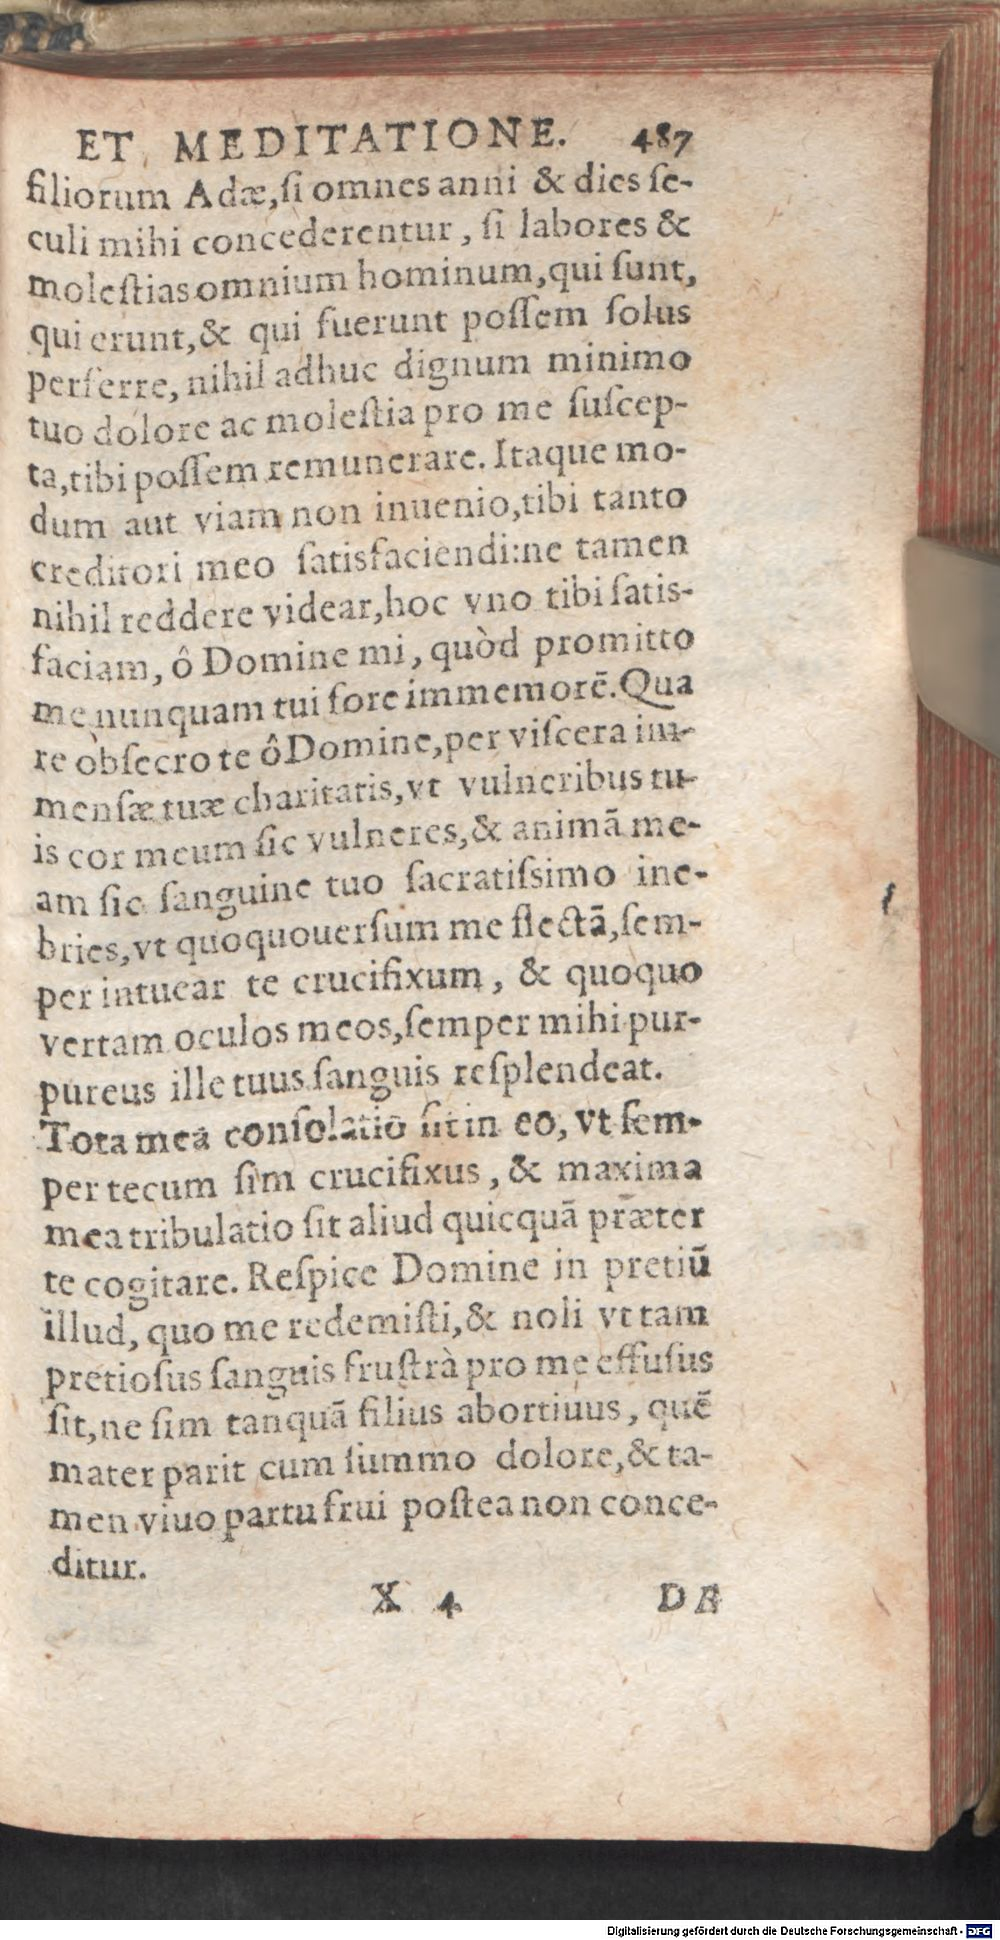 ET MEDITATIONE. 487
filiorum Adæ, ſi omnes anni & dies ſe-
culi mihi concederentur, ſi labores &
moleſtias omnium hominum, qui ſunt,
qui erunt, & qui fuerunt poſſem ſolus
perferre, nihil adhuc dignum minimo
tuo dolore ac moleſtia pro me ſuſcep-
ta, tibi poſſem remunerare. Itaque mo-
dum aut viam non inuenio, tibi tanto
creditori meo ſatisfaciendi: ne tamen
nihil reddere videar, hoc vno tibi ſatis-
faciam, ô Domine mi, quòd promitto
me nunquam tui fore immemorē. Qua
re obſecro te ô Domine, per viſcera im-
menſæ tuæ charitatis, vt vulneribus tu-
is cor meum ſic vulneres, & animā me-
am ſic ſanguine tuo ſacratiſsimo ine-
bries, vt quoquouerſum me flectā, ſem-
per intuear te crucifixum, & quoquo
vertam oculos meos, ſemper mihi pur-
pureus ille tuus ſanguis reſplendeat.
Tota mea conſolatio ſit in eo, vt ſem-
per tecum ſim crucifixus, & maxima
mea tribulatio ſit aliud quicquā præter
te cogitare. Reſpice Domine in pretiū
illud, quo me redemiſti, & noli vt tam
pretioſus ſanguis fruſtrà pro me effuſus
ſit, ne ſim tanquā filius abortiuus, quē
mater parit cum ſummo dolore, & ta-
men viuo partu frui poſtea non conce-
ditur.
X 4 DE
Digitalisierung gefördert durch die Deutsche Forschungsgemeinschaft - DFG